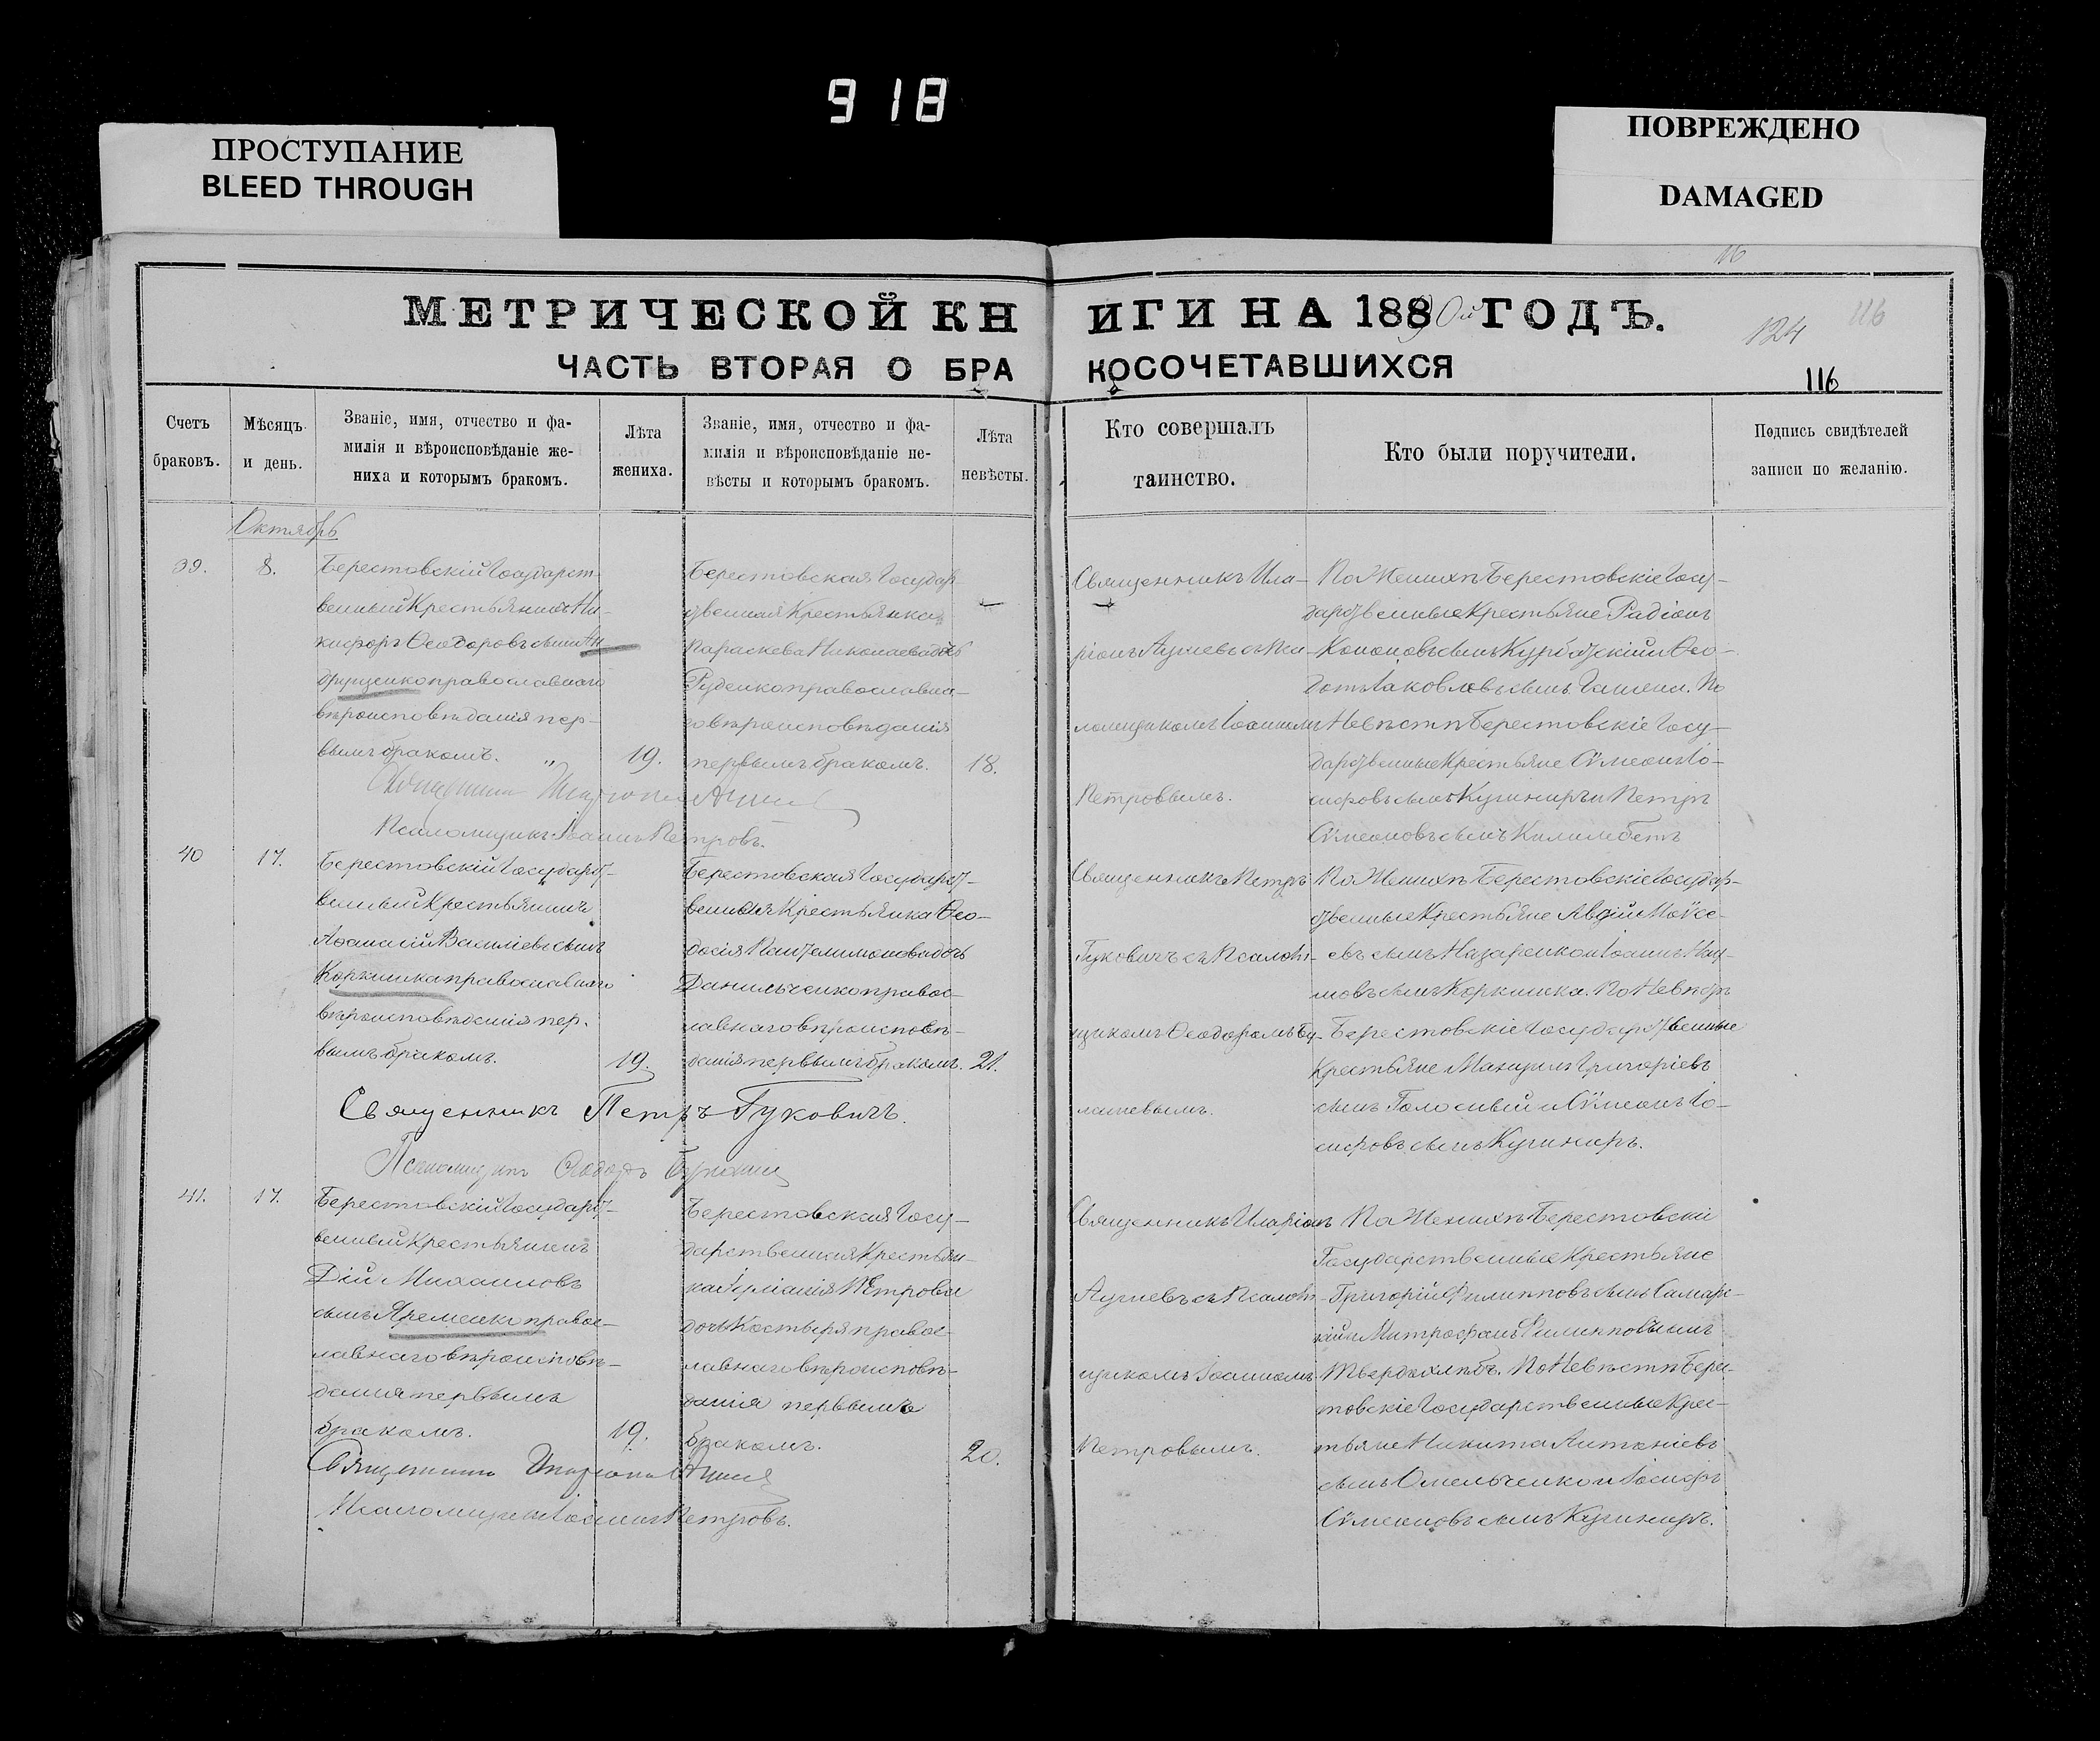 918
ПРОСТУПАНИЕ
BLEED THROUGH
ПОВРЕЖДЕНО
DAMAGED
16
МЕТРИЧЕСКОЙ КНИГИ НА 1890й ГОДЪ.
124
116
ЧАСТЬ ВТОРАЯ О БРАКОСОЧЕТАВШИХСЯ
116
Счетъ
браковъ.
Мѣсяцъ
и день.
Званіе, имя, отчество и фа-
милія и вѣроисповѣданіе же-
ниха и которымъ бракомъ.
Лѣта
жениха.
Званіе, имя, отчество и фа-
милія и вѣроисповѣданіе не-
вѣсты и которымъ бракомъ.
Лѣта
невѣсты.
Кто совершалъ
таинство.
Кто были поручители.
Подпись свидѣтелей
записи по желанію.
Октябрь
39.
8.
Берестовскій Государст-
венный Крестьянинъ Ни-
кифоръ Ѳеодоровъ сынъ Ан
друщенко православнаго
вѣроисповѣданія пер-
вымъ бракомъ.
19.
Берестовская Государ
ственная Крестьянка
Параскева Николаева дочь
Руденко православна-
го вѣроисповѣданія
первымъ бракомъ.
18.
Священникъ Ила-
ріонъ Агиевъ съ Пса-
ломщикомъ Іоанномъ
Петровымъ.
По Женихѣ Берестовскіе Госу-
дарственные Крестьяне Радіонъ
Кононовъ сынъ Курбатскій и Ѳео-
дотъ Іаковлевъ сынъ. По
Невѣстѣ Берестовскіе Госу-
дарственные Крестьяне Сѵмеонъ Іо-
сифовъ сынъ Кушниръ и Петръ
Сѵмеоновъ сынъ Килимбетъ
Священникъ Иларіонъ
Псаломщикъ Іоаннъ Петровъ.
40
17.
Берестовскій Государст-
венный Крестьянинъ
Аѳанасій Василіевъ сынъ
Коркишка православнаго
вѣроисповѣданія пер-
вымъ бракомъ.
19.
Берестовская Государст-
венная Крестьянка Ѳео-
досія Пантелимонова дочь
Данильченко правос-
лавнаго вѣроисповѣ-
данія первымъ бракомъ.
21.
Священникъ Петръ
Гуковичъ съ Псалом-
щикомъ Ѳеодоромъ
По Женихѣ Берестовскіе Государ-
ственные Крестьяне Авдій Моѵсе-
евъ сынъ Назаренко и Іоаннъ Нау-
мовъ сынъ Коркишка. По Невѣстѣ
Берестовскіе Государственные
Крестьяне Мануилъ Григоріевъ
сынъ Голосный и Сѵмеонъ Іо-
сифовъ сынъ Кушниръ.
Священникъ Петръ Гуковичъ.
Псаломщикъ Ѳеодоръ
41.
17.
Берестовскій Государст-
венный Крестьянинъ
Дій Михаиловъ
сынъ Яременко правос-
лавнаго вѣроисповѣ-
данія первымъ
бракомъ.
19.
Берестовская Госу-
дарственная Крестьян-
ка Іуліанія Петрова
дочь Костыря правос-
лавнаго вѣроисповѣ-
данія первымъ
бракомъ.
20.
Священникъ Иларіонъ
Агиевъ съ Псалом-
щикомъ Іоанномъ
Петровымъ.
По Женихѣ Берестовскіе
Государственные Крестьяне
Григорій Филипповъ сынъ Самарс-
кій и Митрофанъ Филипповъ сынъ
Твердохлѣбъ. По Невѣстѣ Берес-
товскіе Государственные Крес-
тьяне Никита Антоніевъ
сынъ Омельченко и Іосифъ
Сѵмеоновъ сынъ Кушниръ.
Священникъ Иларіонъ
Псаломщикъ Іоаннъ Петровъ.